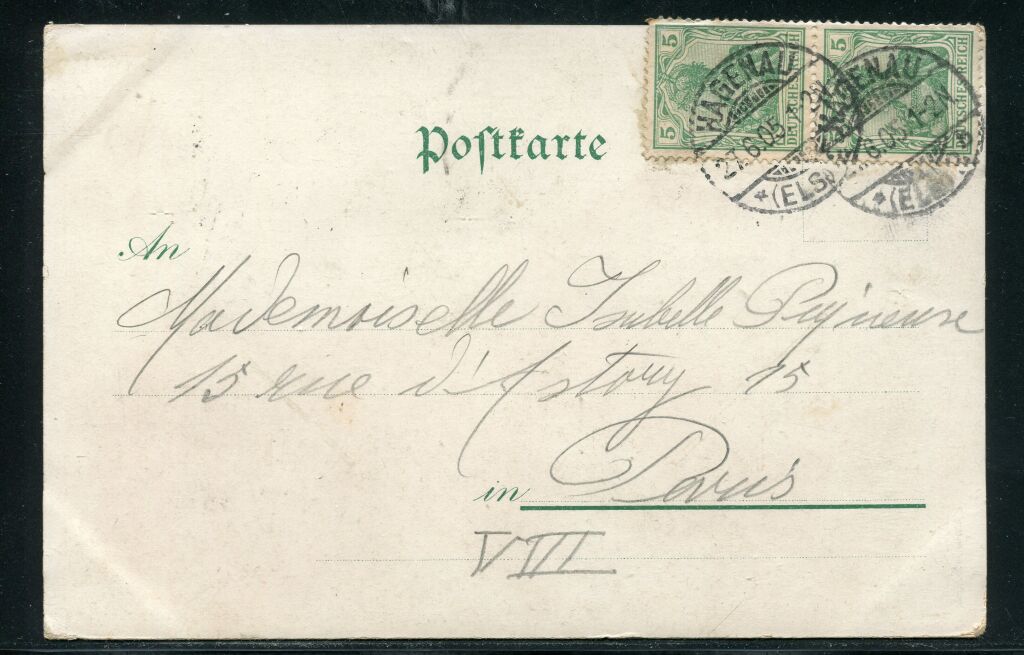 5 DEUTSCHES REICH 5 DEUTSCHES REICH
HAGENAU 27.6.05 * (ELS.)
HAGENAU 6.05 1-2N * (ELS
Postkarte
An
Mademoiselle Isabelle
15 rue d'Astorg 15
in Paris
VIII